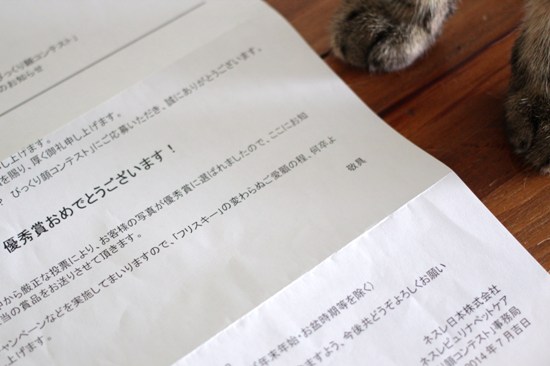 びっくり顔コンテスト」
のお知らせ
し上げます。
を賜り、厚く御礼申し上げます。
びっくり顔コンテスト」にご応募いただき、誠にありがとうございます。
優秀賞おめでとうございます！
中から厳正な投票により、お客様の写真が優秀賞に選ばれましたので、ここにお知
当の賞品をお送りさせて頂きます。
キャンペーンなどを実施してまいりますので、「フリスキー」の変わらぬご愛顧の程、何卒よ
上げます。
敬具
年末年始・お盆時期等を除く）
ますよう、今後共どうぞよろしくお願い
ネスレ日本株式会社
ネスレピュリナペットケア
顔コンテスト」事務局
2014年7月吉日